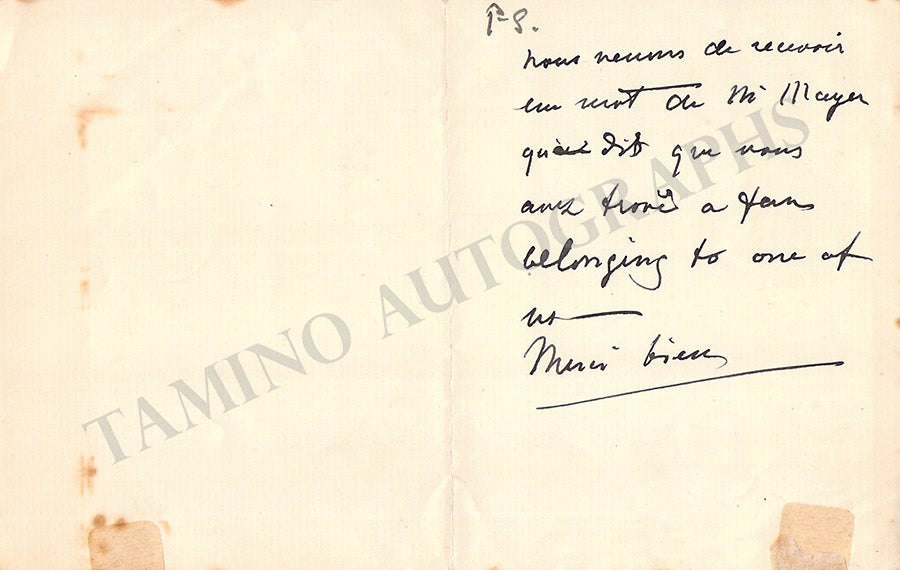 P.S.
nous venons de recevoir
un mot de Mr Mayer
qui dit que vous
avez trouvé a
belonging to one of
us —
Merci bien
TAMINO AUTOGRAPHS